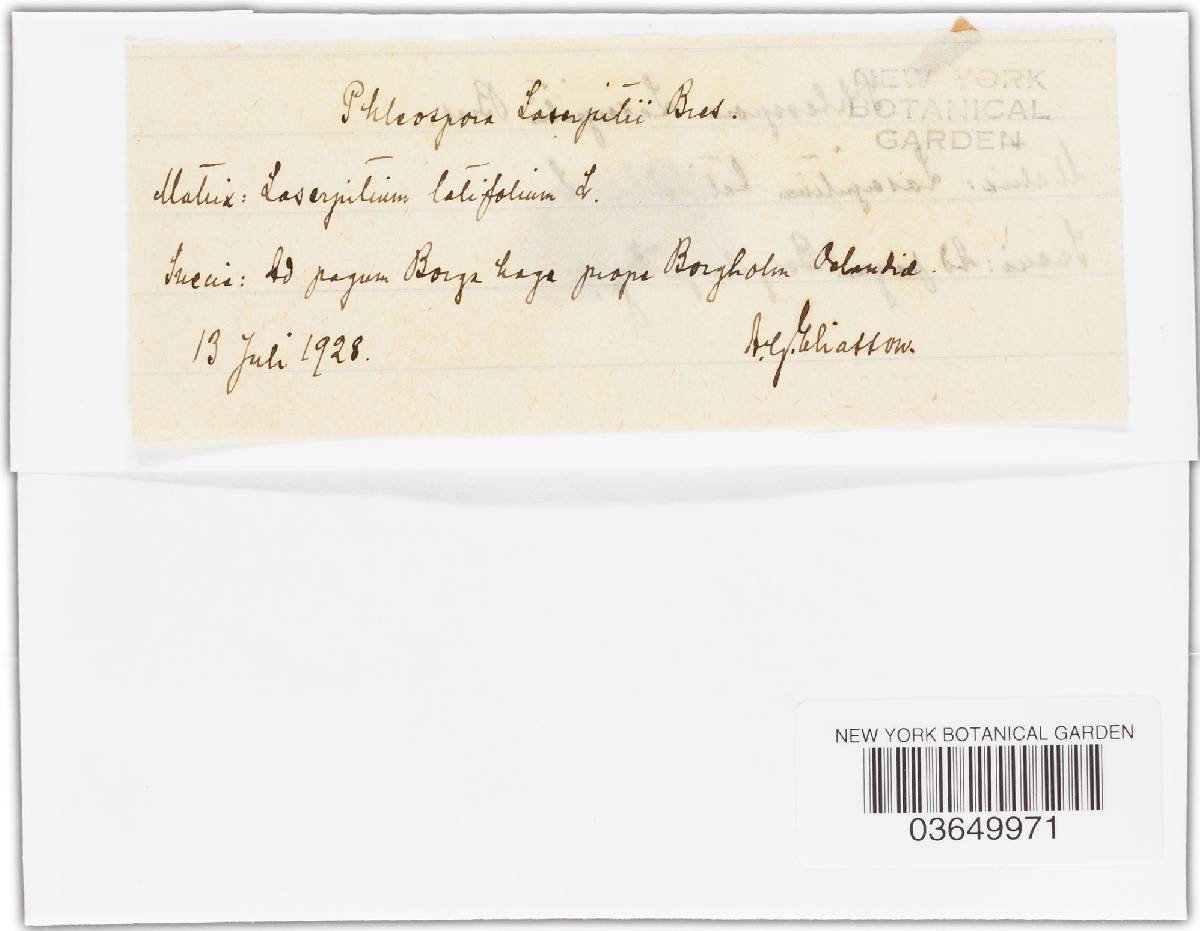 NEW YORK
BOTANICAL
GARDEN
Phleospora Laserpitii Bres.
Matrix: Laserpitium latifolium L.
Suecia: Ad pagum Borga haga prope Borgholm Oelandiæ.
13 Juli 1928.
A.G. Eliasson.
NEW YORK BOTANICAL GARDEN
03649971